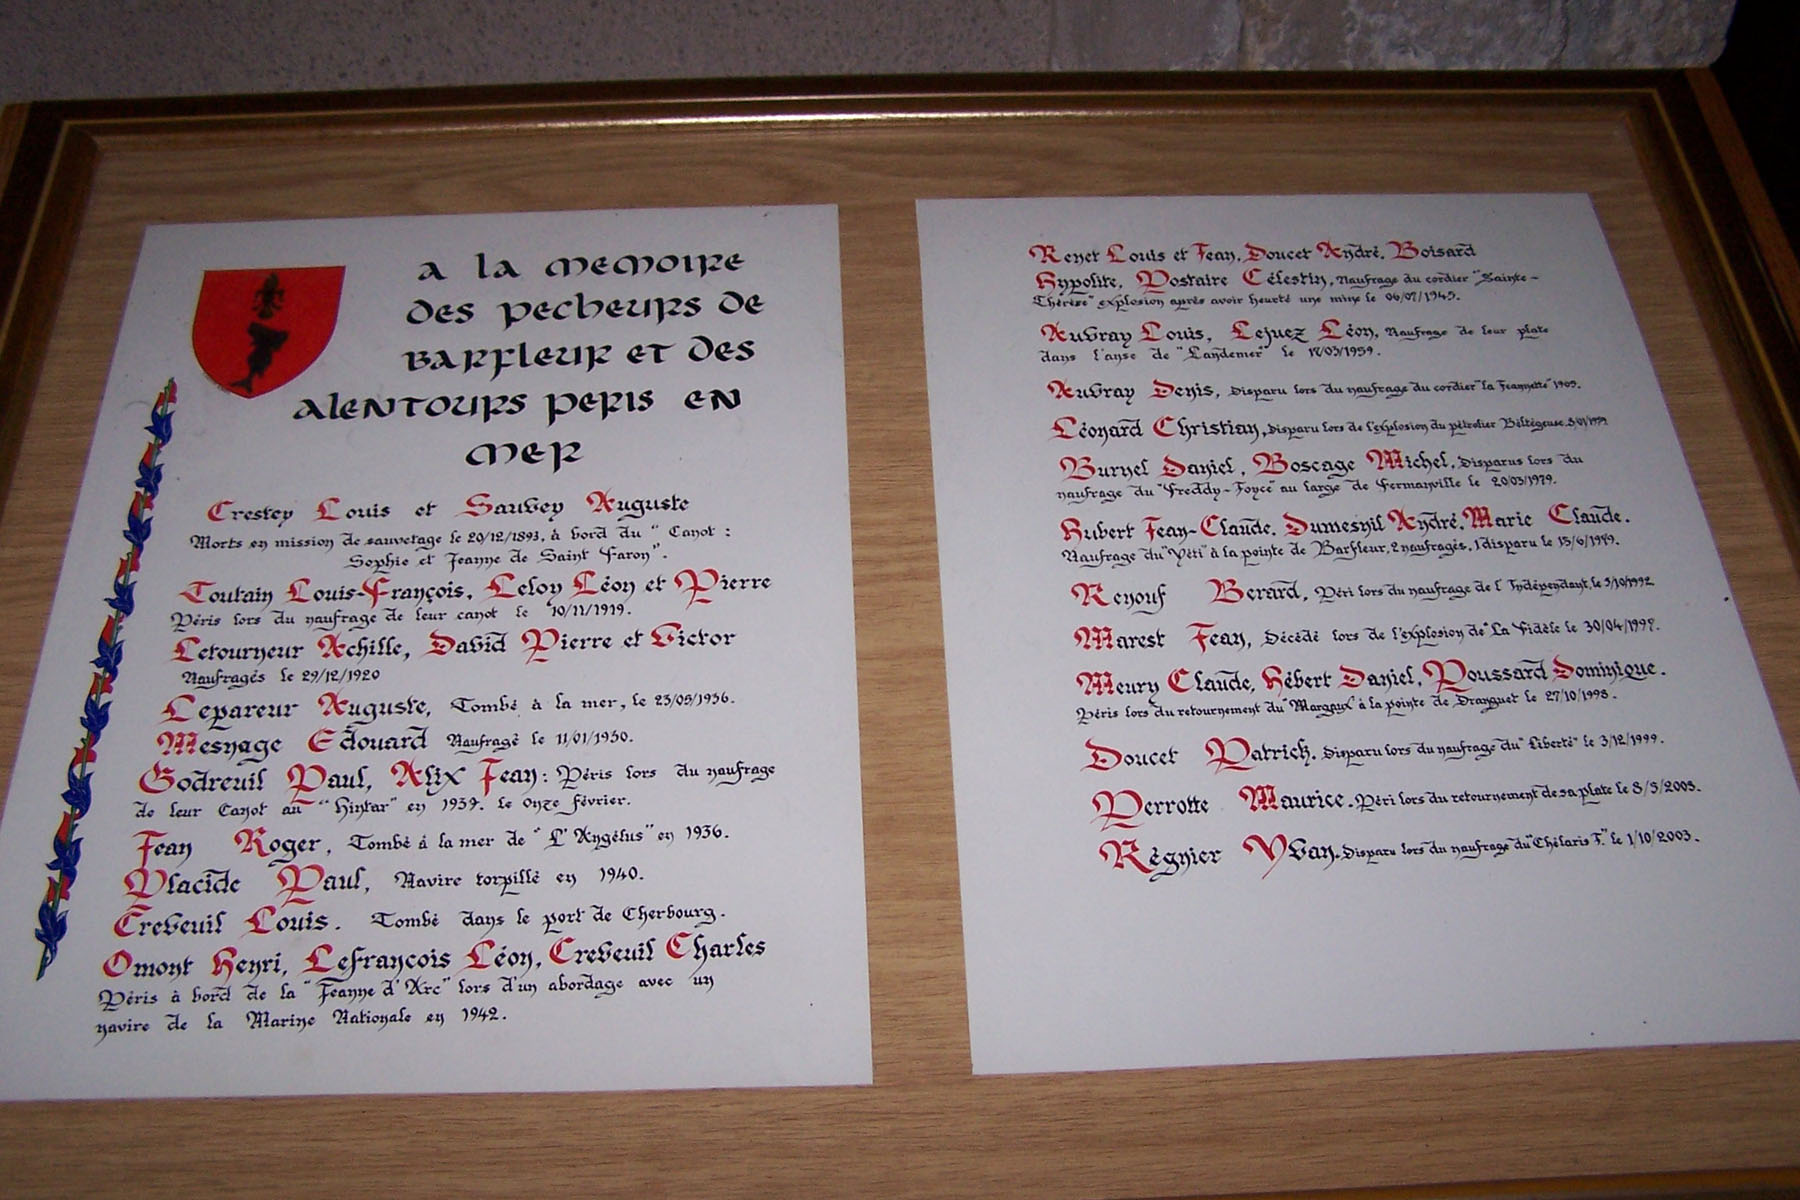 a la memoire
des pecheurs de
Barfleur et des
alentours peris en
mer
Crestey Louis et Sauvey Auguste
Morts en mission de sauvetage le 20/12/1893, à bord du "Canot :
Sophie et Jeanne de Saint Faron".
Toutain Louis-François, Leloy Léon et Pierre
Péris lors du naufrage de leur canot le 10/11/1919.
Letourneur Achille, David Pierre et Victor
Naufragés le 29/12/1920
Lepareur Auguste, Tombé à la mer, le 23/05/1936.
Mesnage Edouard Naufragé le 11/01/1930.
Godreuil Paul, Alix Jean: Péris lors du naufrage
de leur Canot au "Hintar" en 1939. le Onze février.
Jean Roger, Tombé à la mer de "L'Angélus" en 1936.
Placide Paul, Navire torpillé en 1940.
Creveuil Louis. Tombé dans le port de Cherbourg.
Omont Henri, Lefrançois Léon, Creveuil Charles
Péris à bord de la "Jeanne d'Arc" lors d'un abordage avec un
navire de la Marine Nationale en 1942.
Renet Louis et Jean, Doucet André, Boisard
Hypolite, Postaire Célestin, Naufrage du cordier "Sainte-
Thérèse" explosion après avoir heurté une mine le 06/07/1945.
Auvray Louis, Lejuez Léon, Naufrage de leur plate
dans l'anse de "Landemer" le 17/03/1959.
Auvray Denis, Disparu lors du naufrage du cordier "la Jeannette" 1965.
Léonard Christian, disparu lors de l'explosion du pétrolier Bételgeuse
Burnel Daniel, Boscage Michel, Disparus lors du
naufrage du "Freddy-Joyce" au large de Fermanville le 20/03/1979.
Hubert Jean-Claude, Dumesnil André, Marie Claude.
Naufrage du "Yéti" à la pointe de Barfleur, 2 naufragés, 1 disparu le
Renouf Berard, Péri lors du naufrage de l'Indépendant, le 5/10/1992
Marest Jean, Décédé lors de l'explosion de "La Fidèle le
Meury Claude, Hébert Daniel, Poussard Dominique.
Péris lors du retournement du "Margaux" à la pointe de Dranguet le 27/10/1998.
Doucet Patrick. Disparu lors du naufrage du "Liberté" le 3/12/1999.
Perrotte Maurice. Péri lors du retournement de sa plate le 8/5/2003.
Régnier Yvan. Disparu lors du naufrage du "Chélaris J." le 1/10/2003.